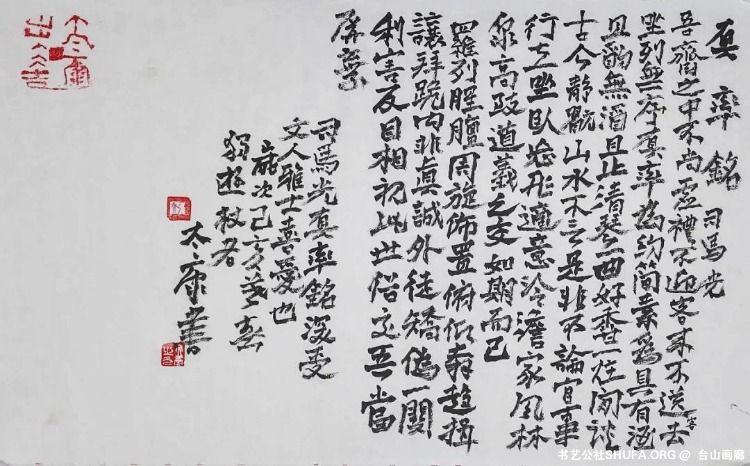 真率銘 司馬光
吾齋之中不尚虛禮不迎客來不送客去
坐列無序真率為約簡素為具有酒
且酌無酒且止清琴一曲好香一炷閑談
古今靜翫山水不言是非不論官事
行立坐臥忘形適意冷澹家風林
泉高致道義之交如期而已
羅列腥膻周旋佈置俯仰奔趨揖
讓拜跪內非真誠外徒矯偽一關
利害反目相視此世俗交吾當
屏棄
司馬光真率銘深受
文人雅士喜愛也
歲次己亥
太康書
书艺公社SHUFA.ORG @ 台山画廊